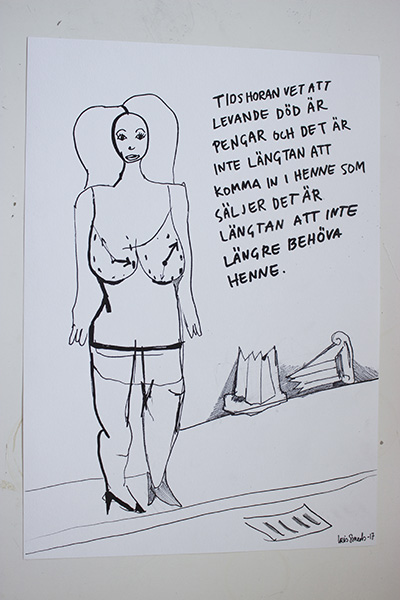 TIDSHORAN VET ATT
LEVANDE DÖD ÄR
PENGAR OCH DET ÄR
INTE LÄNGTAN ATT
KOMMA IN I HENNE SOM
SÄLJER DET ÄR
LÄNGTAN ATT INTE
LÄNGRE BEHÖVA
HENNE.
-17